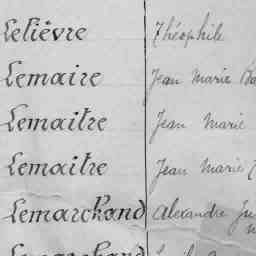 Lelièvre Théophile
Lemaire Jean Marie
Lemaître Jean Marie
Lemaître Jean Marie
Lemarchand Alexandre